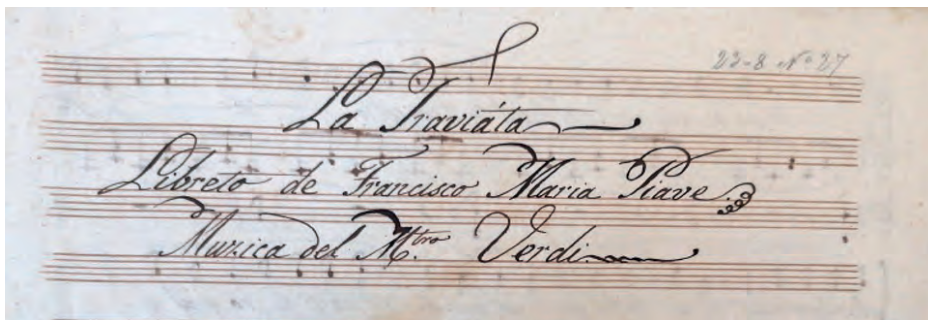 22-8 Nº 27
La Traviáta
Libreto de Francisco Maria Piave
Muzica del Mtro. Verdi